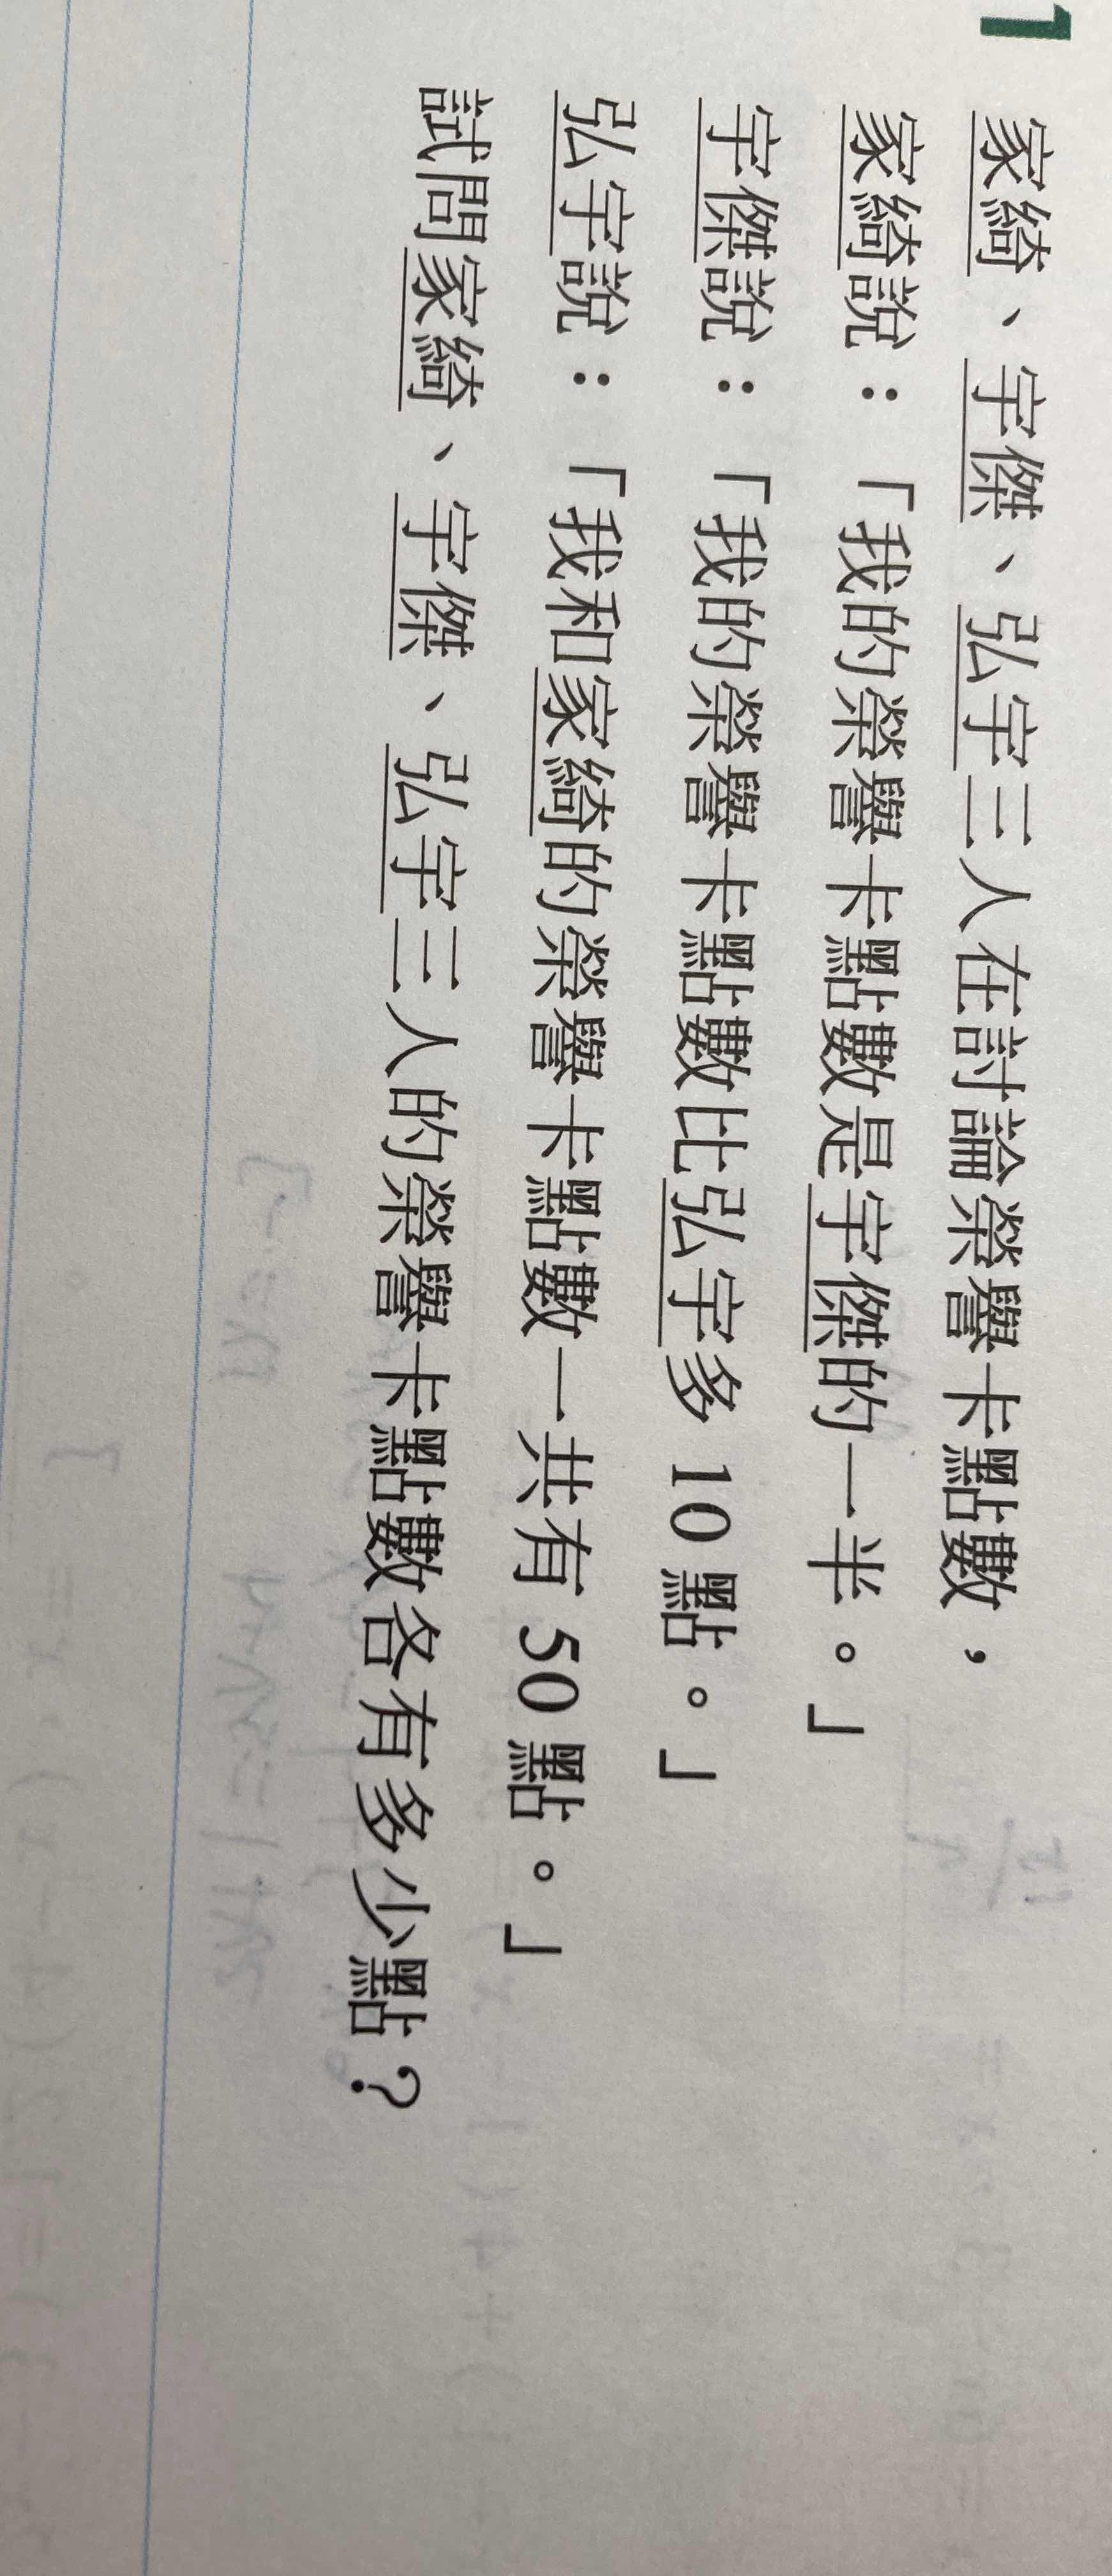 1
家綺、宇傑、弘宇三人在討論榮譽卡點數，
家綺說：「我的榮譽卡點數是宇傑的一半。」
宇傑說：「我的榮譽卡點數比弘宇多 10 點。」
弘宇說：「我和家綺的榮譽卡點數一共有 50 點。」
試問家綺、宇傑、弘宇三人的榮譽卡點數各有多少點？